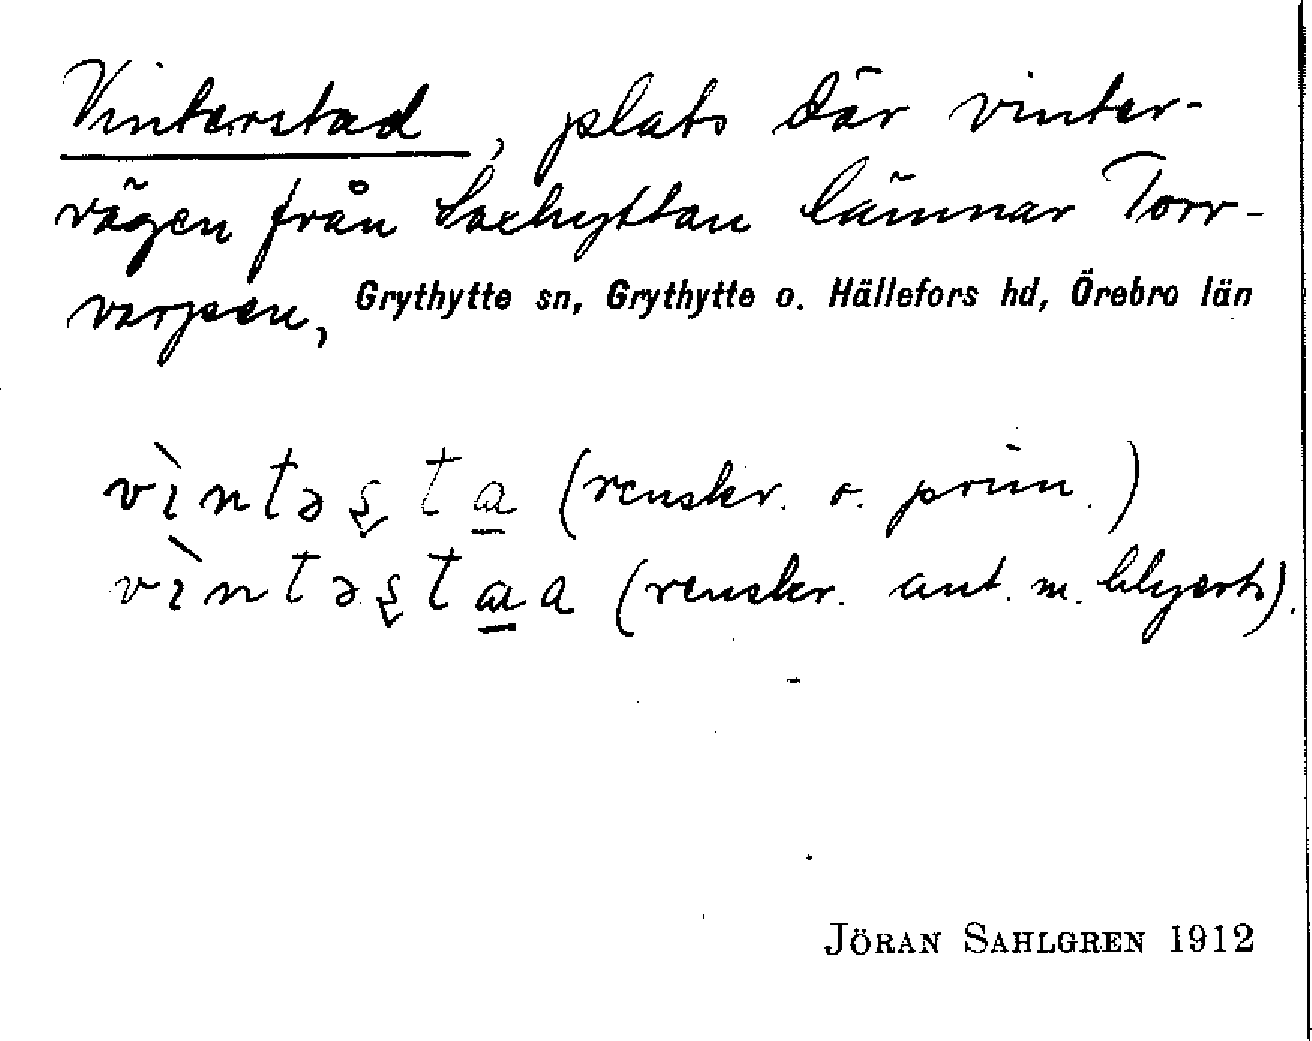 Vinterstad, plats där vinter-
vägen från Saxhyttan lämnar Torr-
varpen, Grythytte sn, Grythytte o. Hällefors hd, Örebro län
vìntəʂta (renskr. o. prim.)
vìntəʂtaa (renskr. ant. m. blyerts).
JÖRAN SAHLGREN 1912